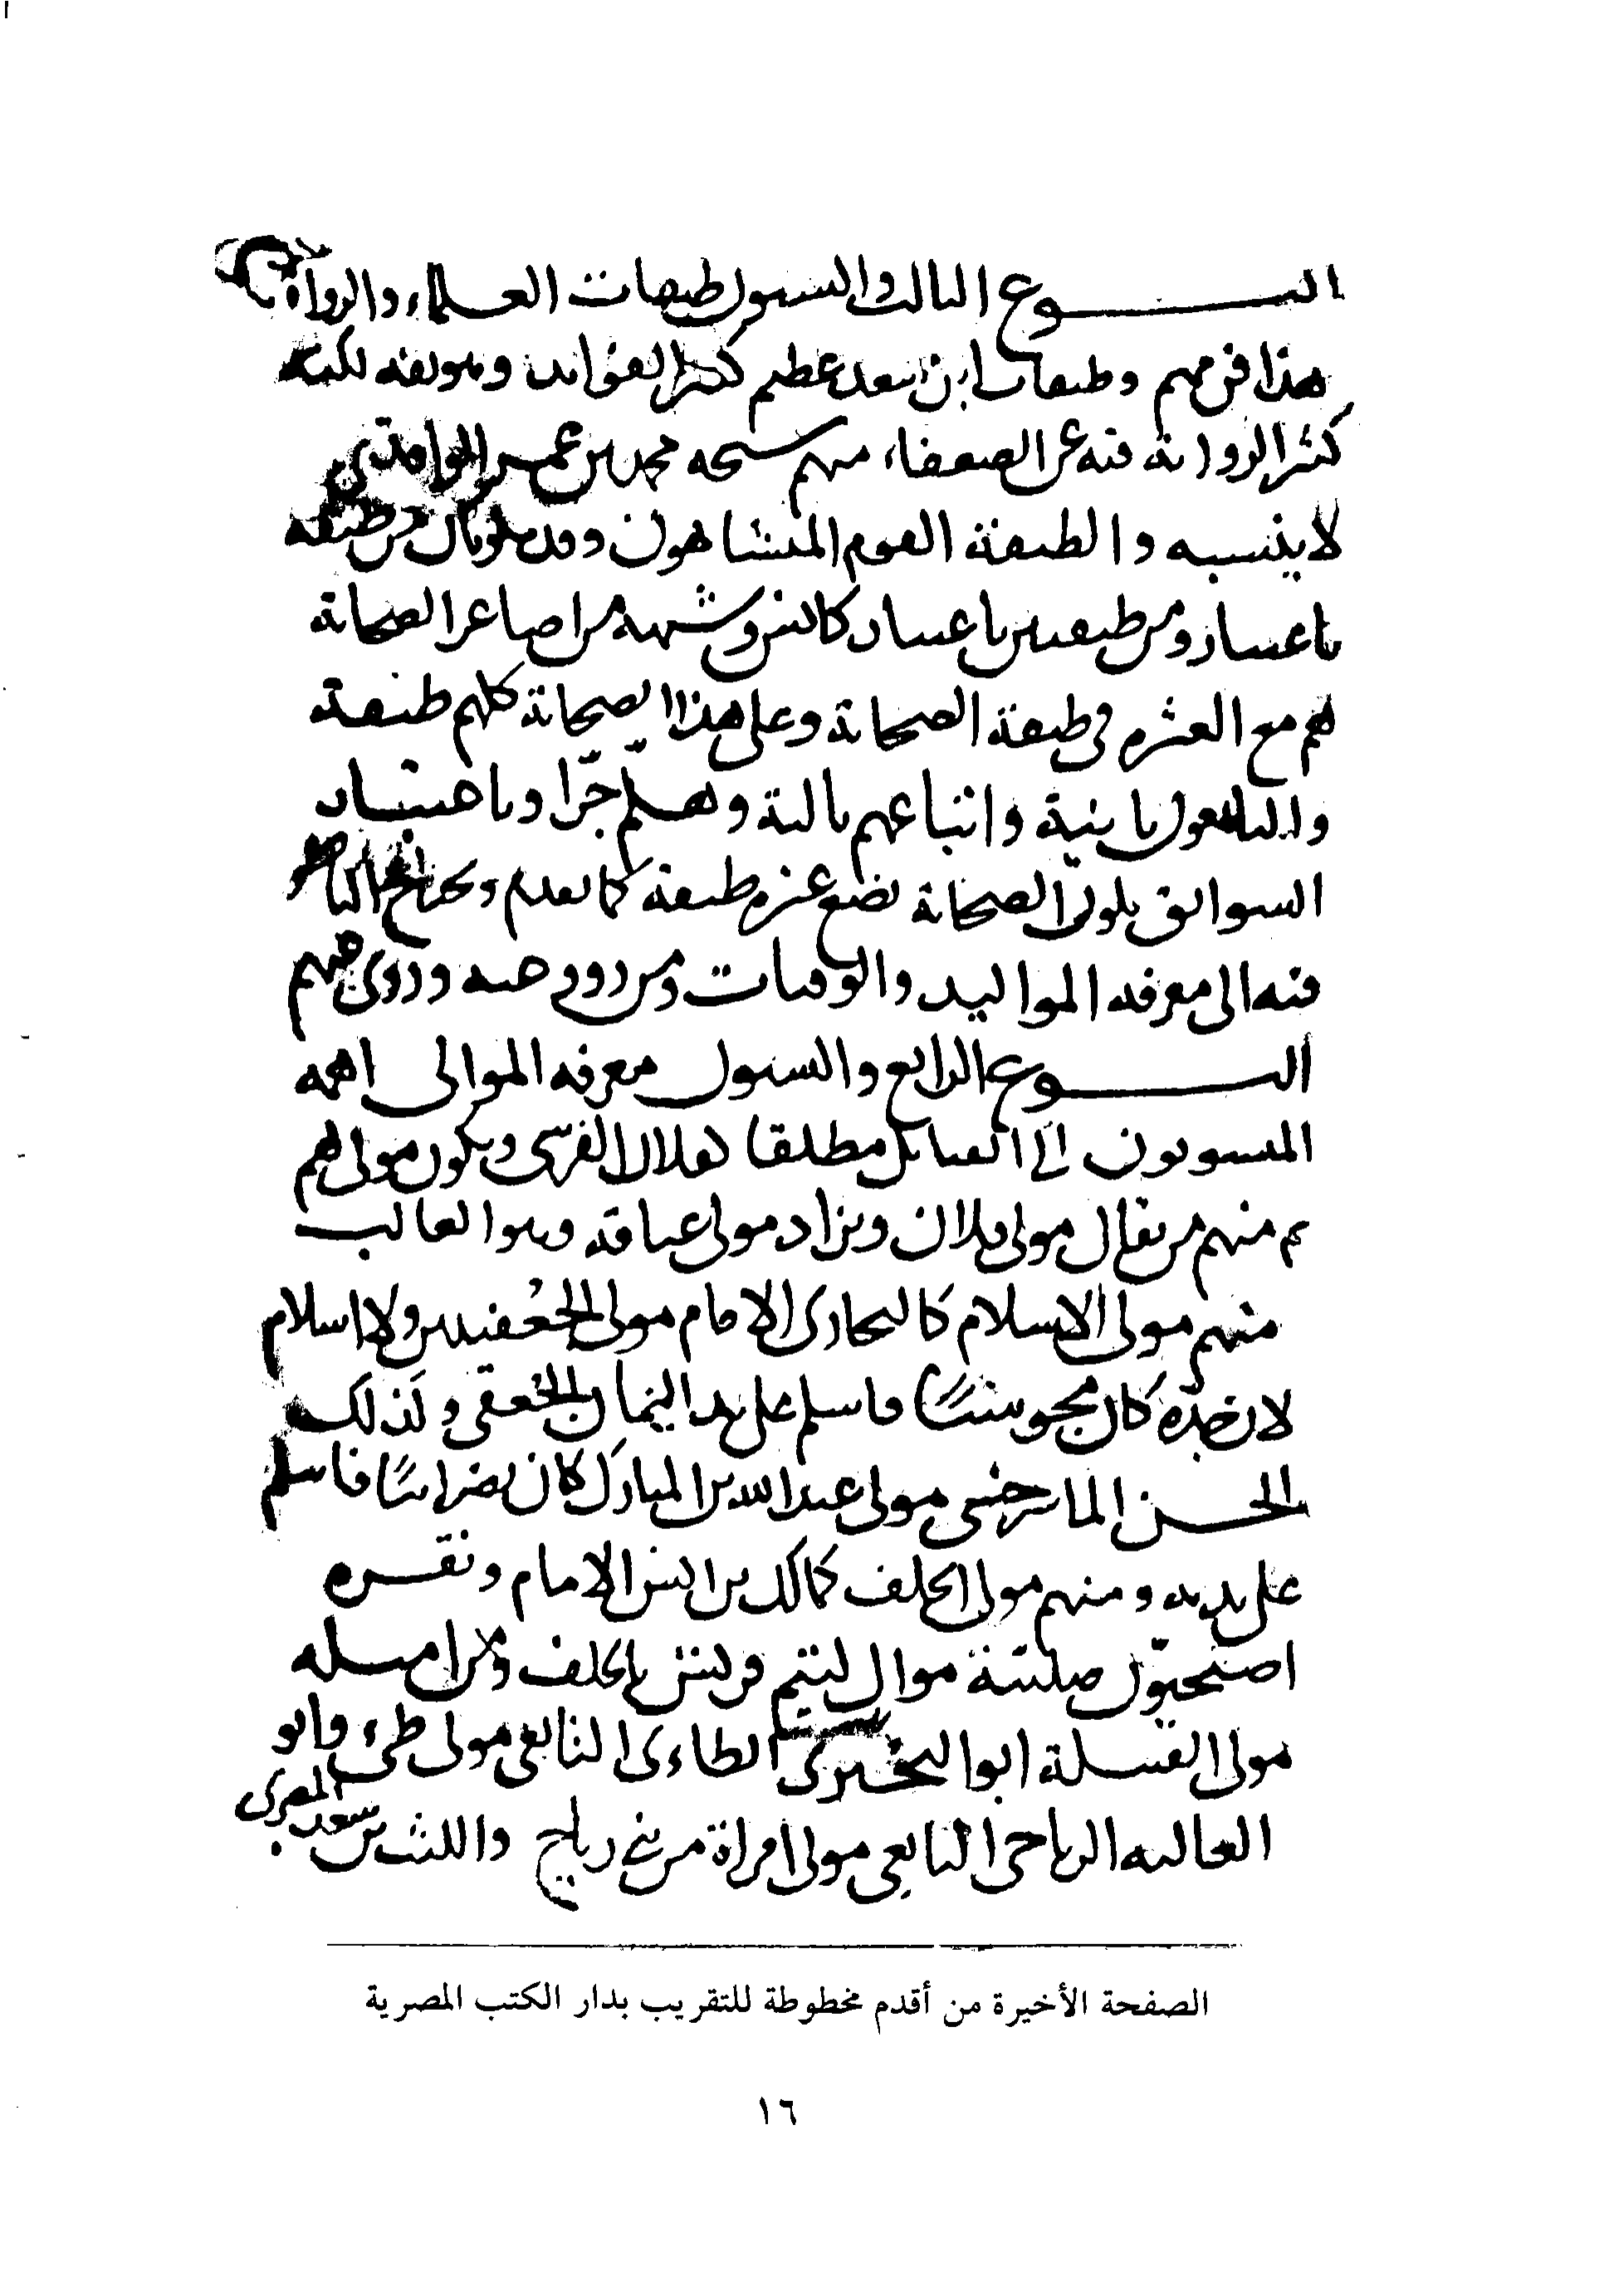 النوع الثالث والستون طبقات العلماء والرواة
هذا فن مهم وطبقات ابن سعد عظيم كثير الفوائد وهو ثقة لكنه
كثير الرواية فيه عن الضعفاء منهم شيخه محمد بن عمر الواقدي
لا ينسبه والطبقة القوم المتشابهون وقد يكونان من طبقة
باعتبار ومن طبقتين باعتبار كأنس وشبهه من أصاغر الصحابة
هم مع العشرة في طبقة الصحابة وعلى هذا الصحابة كلهم طبقة
والتابعون ثانية واتباعهم ثالثة وهلم جرّا وباعتبار
السوابق يكون الصحابة بضع عشرة طبقة كما تقدم ويحتاج الناظر
فيه الى معرفة المواليد والوفيات ومن روو عنه وروى عنهم
النوع الرابع والستون معرفة الموالي اهمه
المنسوبون الى القبائل مطلقا كفلان القرشي ويكون مولى لهم
ثم منهم من يقال مولى فلان ويراد مولى عتاقه وهو الغالب
منهم مولى الاسلام كالبخاري الامام مولى الجُعفيين ولاء اسلام
لان جدّه كان مجوسيّا فاسلم على يد اليمان الجعفي وكذلك
الحسن الماسرجسي مولى عبد الله بن المبارك كان نصرانيًا فاسلم
على يديه ومنهم مولى الحلف كمالك بن انس الامام ونفره
اصبحيّون صليبة موال لتيم قريش بالحلف ومن امثلة
مولى القبيلة ابو البختري الطاءى التابعي مولى طيء وابو
العاليه الرياحي التابعي مولى امراة من بني رياح والليث بن سعد المصري
الصفحة الأخيرة من أقدم مخطوطة للتقريب بدار الكتب المصرية
١٦